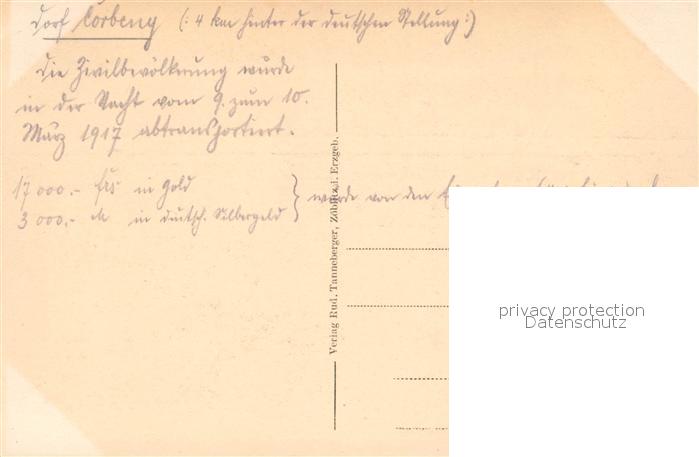 Dorf Corbeny (: 4 km hinter der deutschen Stellung :)
Die Zivilbevölkerung wurde
in der Nacht vom 9. zum 10.
März 1917 abtransportiert.
17 000.- frs in Gold
3 000.- M in deutsch. Silbergeld } wurde von den
Verlag Rud. Tanneberger, Zöblitz i. Erzgeb.
privacy protection
Datenschutz